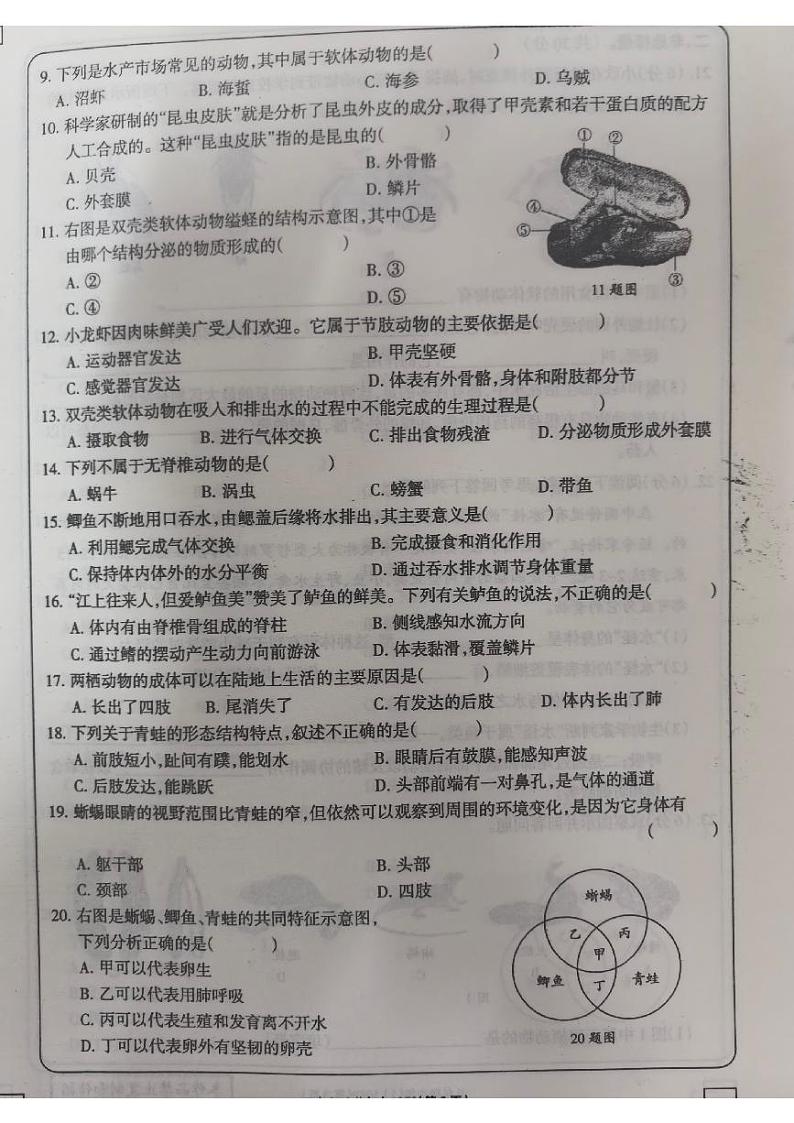 9. 下列是水产市场常见的动物,其中属于软体动物的是(　　)
A. 沼虾　B. 海蜇　C. 海参　D. 乌贼
10. 科学家研制的“昆虫皮肤”就是分析了昆虫外皮的成分,取得了甲壳素和若干蛋白质的配方
人工合成的。这种“昆虫皮肤”指的是昆虫的(　　)
A. 贝壳　B. 外骨骼
C. 外套膜　D. 鳞片
11. 右图是双壳类软体动物缢蛏的结构示意图,其中①是
由哪个结构分泌的物质形成的(　　)
A. ②　B. ③
C. ④　D. ⑤
① ②
④
⑤
③
11 题图
12. 小龙虾因肉味鲜美广受人们欢迎。它属于节肢动物的主要依据是(　　)
A. 运动器官发达　B. 甲壳坚硬
C. 感觉器官发达　D. 体表有外骨骼,身体和附肢都分节
13. 双壳类软体动物在吸入和排出水的过程中不能完成的生理过程是(　　)
A. 摄取食物　B. 进行气体交换　C. 排出食物残渣　D. 分泌物质形成外套膜
14. 下列不属于无脊椎动物的是(　　)
A. 蜗牛　B. 涡虫　C. 螃蟹　D. 带鱼
15. 鲫鱼不断地用口吞水,由鳃盖后缘将水排出,其主要意义是(　　)
A. 利用鳃完成气体交换　B. 完成摄食和消化作用
C. 保持体内体外的水分平衡　D. 通过吞水排水调节身体重量
16. “江上往来人,但爱鲈鱼美”赞美了鲈鱼的鲜美。下列有关鲈鱼的说法,不正确的是(　　)
A. 体内有由脊椎骨组成的脊柱　B. 侧线感知水流方向
C. 通过鳍的摆动产生动力向前游泳　D. 体表黏滑,覆盖鳞片
17. 两栖动物的成体可以在陆地上生活的主要原因是(　　)
A. 长出了四肢　B. 尾消失了　C. 有发达的后肢　D. 体内长出了肺
18. 下列关于青蛙的形态结构特点,叙述不正确的是(　　)
A. 前肢短小,趾间有蹼,能划水　B. 眼睛后有鼓膜,能感知声波
C. 后肢发达,能跳跃　D. 头部前端有一对鼻孔,是气体的通道
19. 蜥蜴眼睛的视野范围比青蛙的窄,但依然可以观察到周围的环境变化,是因为它身体有
(　　)
A. 躯干部　B. 头部
C. 颈部　D. 四肢
20. 右图是蜥蜴、鲫鱼、青蛙的共同特征示意图,
下列分析正确的是(　　)
A. 甲可以代表卵生
B. 乙可以代表用肺呼吸
C. 丙可以代表生殖和发育离不开水
D. 丁可以代表卵外有坚韧的卵壳
蜥蜴
乙　丙
甲
鲫鱼　丁　青蛙
20 题图